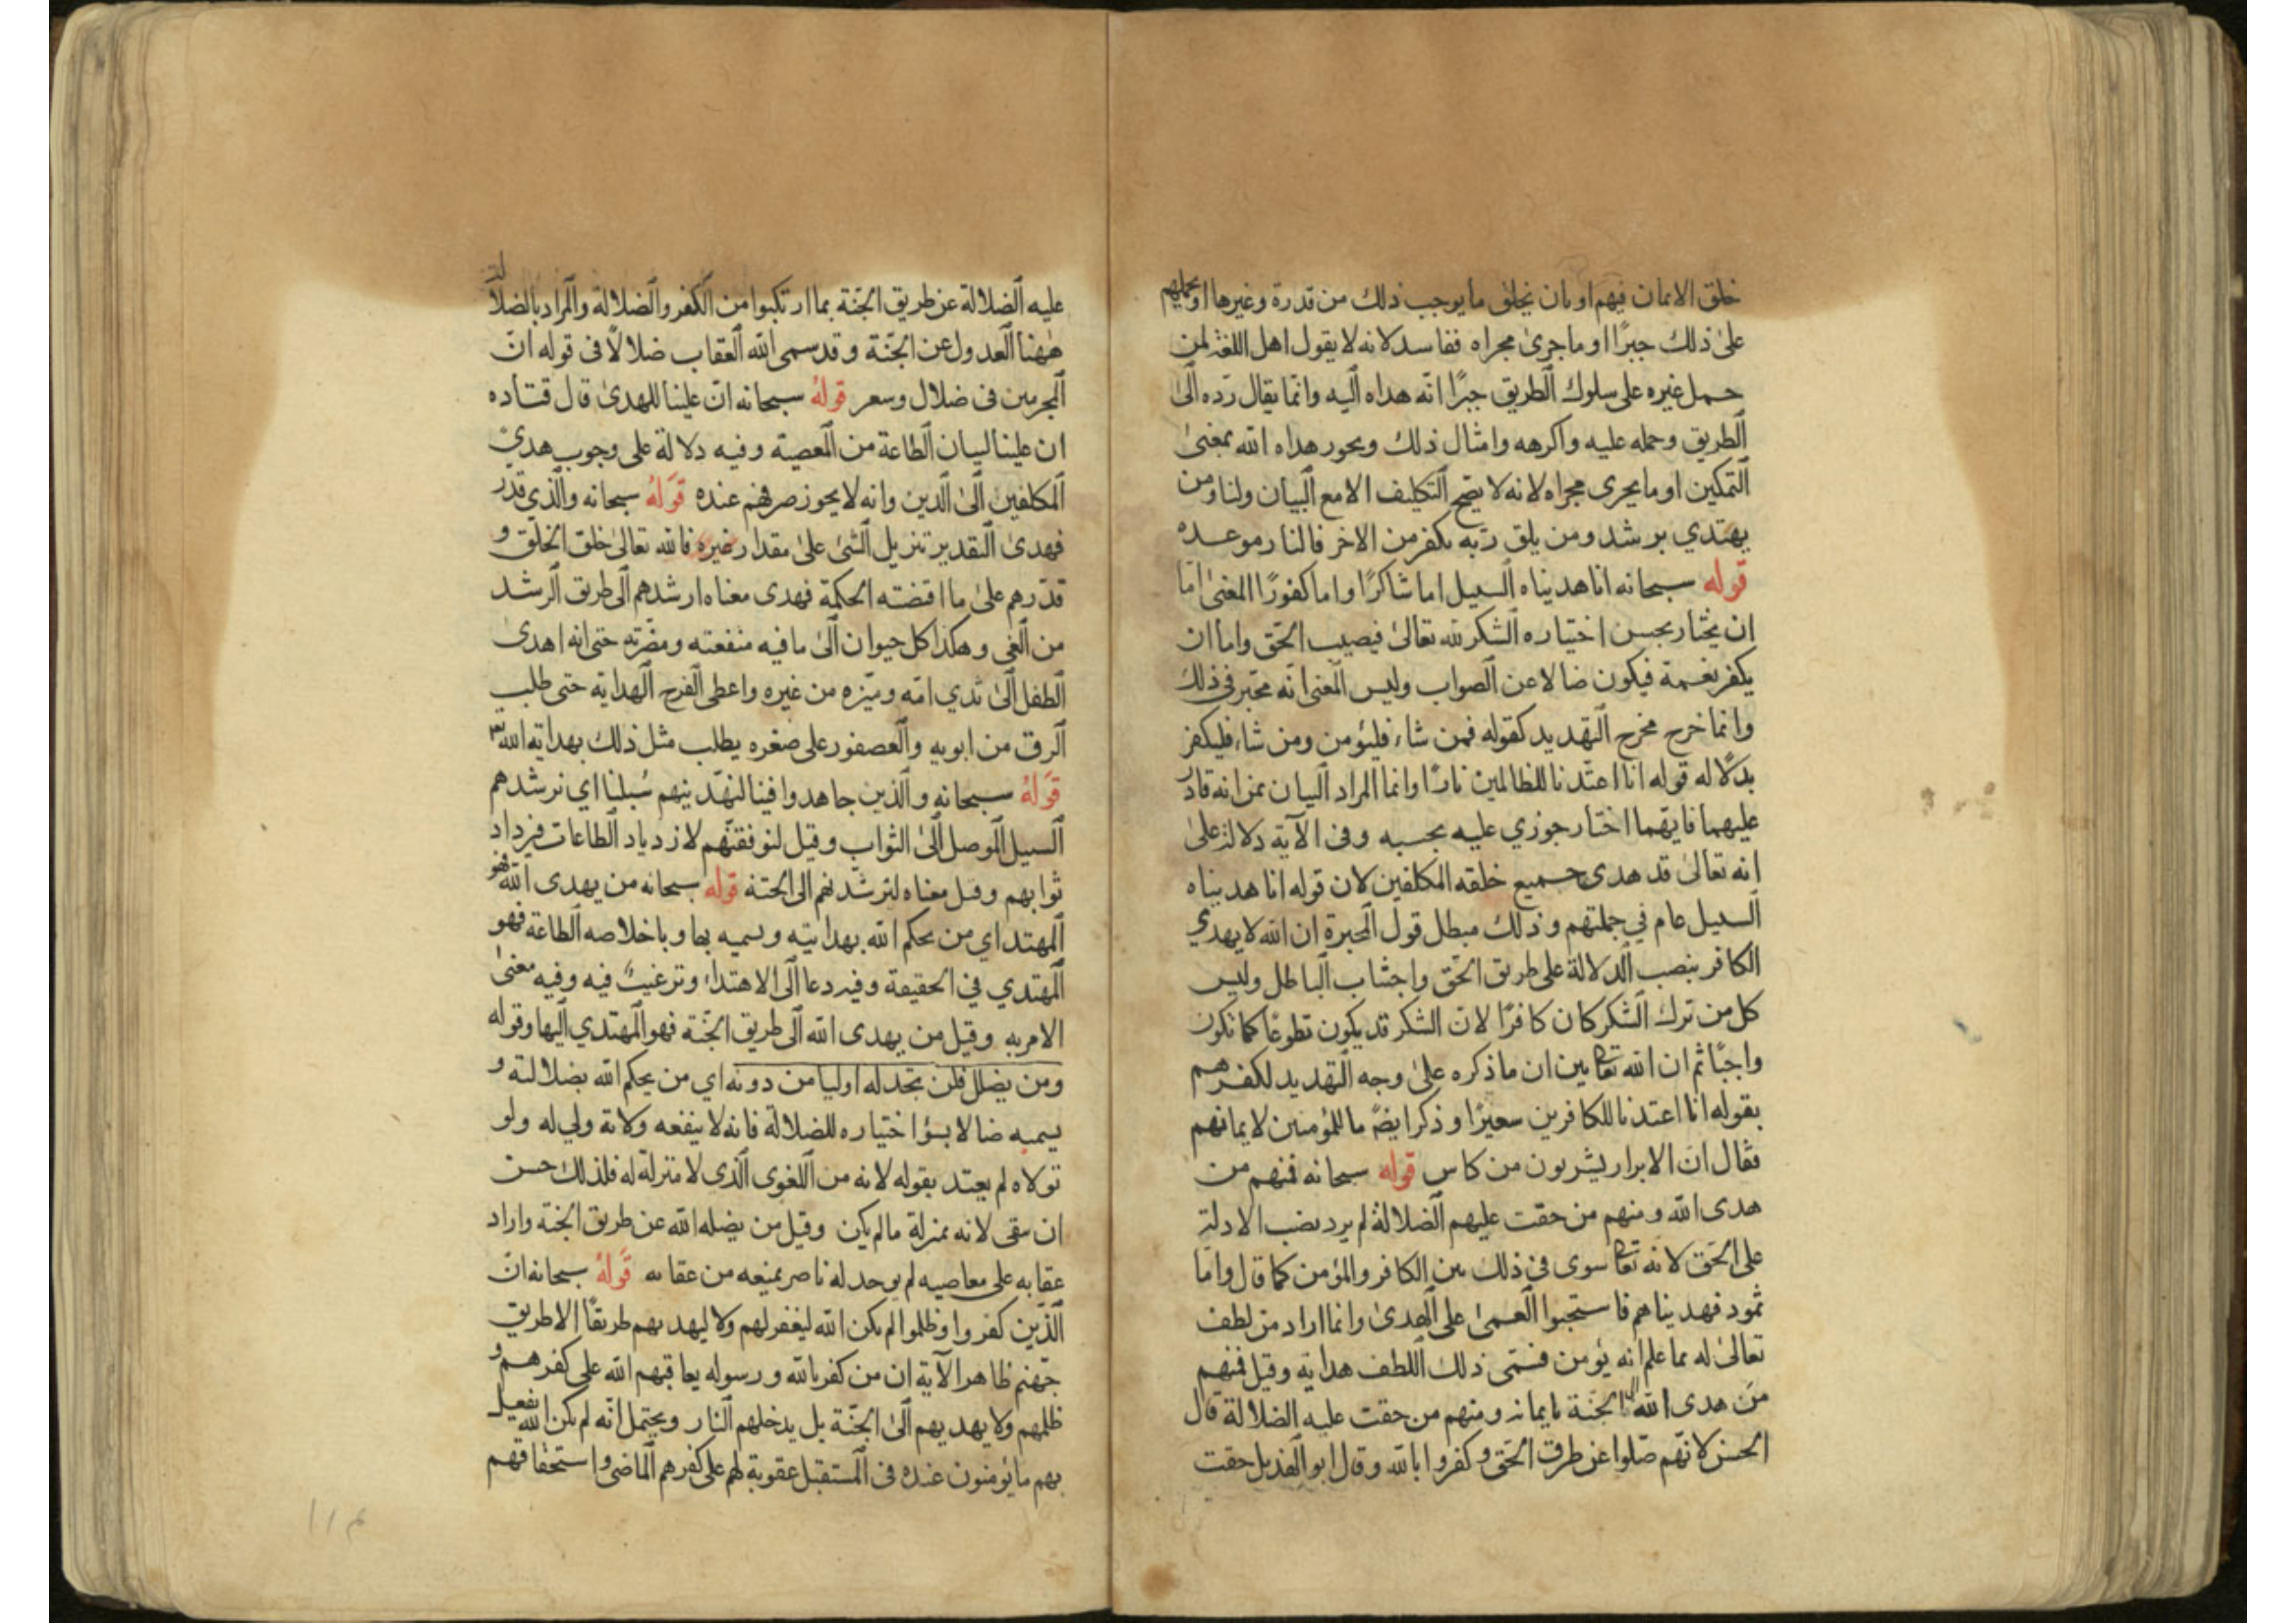 خلق الايمان فيهم او بان يخلق ما يوجب ذلك من قدرة وغيرها او يحملهم
على ذلك جبرًا او ما جرى مجراه ففاسد لانه لا يقول اهل اللغة لمن
حمل غيره على سلوك الطريق جبرًا انّه هداه اليه وانّما يقال ردّه الى
الطريق وحمله عليه واكرهه وامثال ذلك ويجوز هداه الله بمعنى
التمكين او ما يجرى مجراه لانه لا يصح التكليف الا مع البيان ولنا ومن
يهتدي يرشد ومن يلق ربّه بكفر من الاخر فالنار موعده
قوله سبحانه انا هديناه السبيل اما شاكرًا واما كفورًا المعنى امّا
ان يختار بحسن اختياره الشكر لله تعالى فيصيب الحق واما ان
يكفر نعمة فيكون ضالا عن الصواب وليس المعنى انّه مخيّر في ذلك
وانما خرج مخرج التهديد كقوله فمن شاء فليؤمن ومن شاء فليكفر
بدلالة قوله انا اعتدنا للظالمين نارًا وانما المراد البيان عن انه قادر
عليهما فايهما اختار جوزي عليه بحسبه وفى الآية دلالة على
انه تعالى قد هدى جميع خلقه المكلفين لان قوله انا هديناه
السبيل عام في جملتهم وذلك مبطل قول المجبرة ان الله لا يهدي
الكافر بنصب الدلالة على طريق الحق واجتناب الباطل وليس
كل من ترك الشكر كان كافرًا لان الشكر قد يكون تطوعًا كما تكون
واجبًا ثم ان الله تعا بين ان ما ذكره على وجه التهديد لكفرهم
بقوله انا اعتدنا للكافرين سعيرًا وذكر ايضً ما للمؤمنين لايمانهم
فقال ان الابرار يشربون من كاس قوله سبحانه فمنهم من
هدى الله ومنهم من حقت عليهم الضلالة لم يرد نصب الادلة
على الحق لانه تعا سوى في ذلك بين الكافر والمؤمن كما قال واما
ثمود فهديناهم فاستحبوا العمى على الهدى وانما اراد من لطف
تعالى له بما علم انه يؤمن فسمى ذلك اللطف هداية وقيل فمنهم
من هدى الله الى الجنة بايمانه ومنهم من حقت عليه الضلالة قال
الحسن لانهم ضلوا عن طرق الحق وكفروا بالله وقال ابو الهذيل حقت
عليه الضلالة عن طريق الجنّة بما ارتكبوا من الكفر والضلالة والمراد بالضلالة
ههنا العدول عن الجنّة وقد سمى الله العقاب ضلالًا فى قوله انّ
المجرمين فى ضلال وسعر قوله سبحانه انّ علينا للهدى قال قتاده
ان علينا لبيان الطاعة من المعصية وفيه دلالة على وجوب هدى
المكلفين الى الدين وانه لا يجوز صرفهم عنده قوله سبحانه والذي قدر
فهدى التقدير تنزيل الشئ على مقدار غيره فالله تعالى خلق الخلق و
قدّرهم على ما اقتضته الحكمة فهدى معناه ارشدهم الى طريق الرشد
من الغي وهكذا كل حيوان الى ما فيه منفعته ومضرته حتى انه اهدى
الطفل الى ثدي امّه وميّزه من غيره واعطى الفرخ الهداية حتى طلب
الزق من ابويه والعصفور على صغره يطلب مثل ذلك بهداية الله
قوله سبحانه والذين جاهدوا فينا لنهدينهم سُبلنا اي نرشدهم
السبيل الموصل الى الثواب وقيل لنوفقنّهم لازدياد الطاعات فيزداد
ثوابهم وقيل معناه لنرشدنهم الى الجنة قوله سبحانه من يهدى الله فهو
المهتد اي من يحكم الله بهدايته ويسميه بها وباخلاصه الطاعة فهو
المهتدي في الحقيقة وفيه دعا الى الاهتداء وترغيبً فيه وفيه معنى
الامر به وقيل من يهدى الله الى طريق الجنّة فهو المهتدي اليها وقوله
ومن يضلل فلن تجد له اوليا من دونه اي من يحكم الله بضلالته و
يسميه ضالا بسؤ اختياره للضلالة فانه لا ينفعه ولاية ولي له ولو
تولاه لم يعتد بقوله لانه من اللغوى الذى لا منزلة له فلذلك حسن
ان ينفى لانه بمنزلة ما لم يكن وقيل من يضله الله عن طريق الجنة واراد
عقابه على معاصيه لم يوجد له ناصر يمنعه من عقابه قوله سبحانه انّ
الذّين كفروا وظلموا لم يكن الله ليغفر لهم ولا ليهديهم طريقًا الا طريق
جهنم ظاهر الآية ان من كفر بالله ورسوله يعاقبهم الله على كفرهم و
ظلمهم ولا يهديهم الى الجنّة بل يدخلهم النار ويحتمل انّه لم يكن الله يفعل
بهم ما يؤمنون عنده فى المستقبل عقوبة لهم على كفرهم الماضى واستحقاقهم